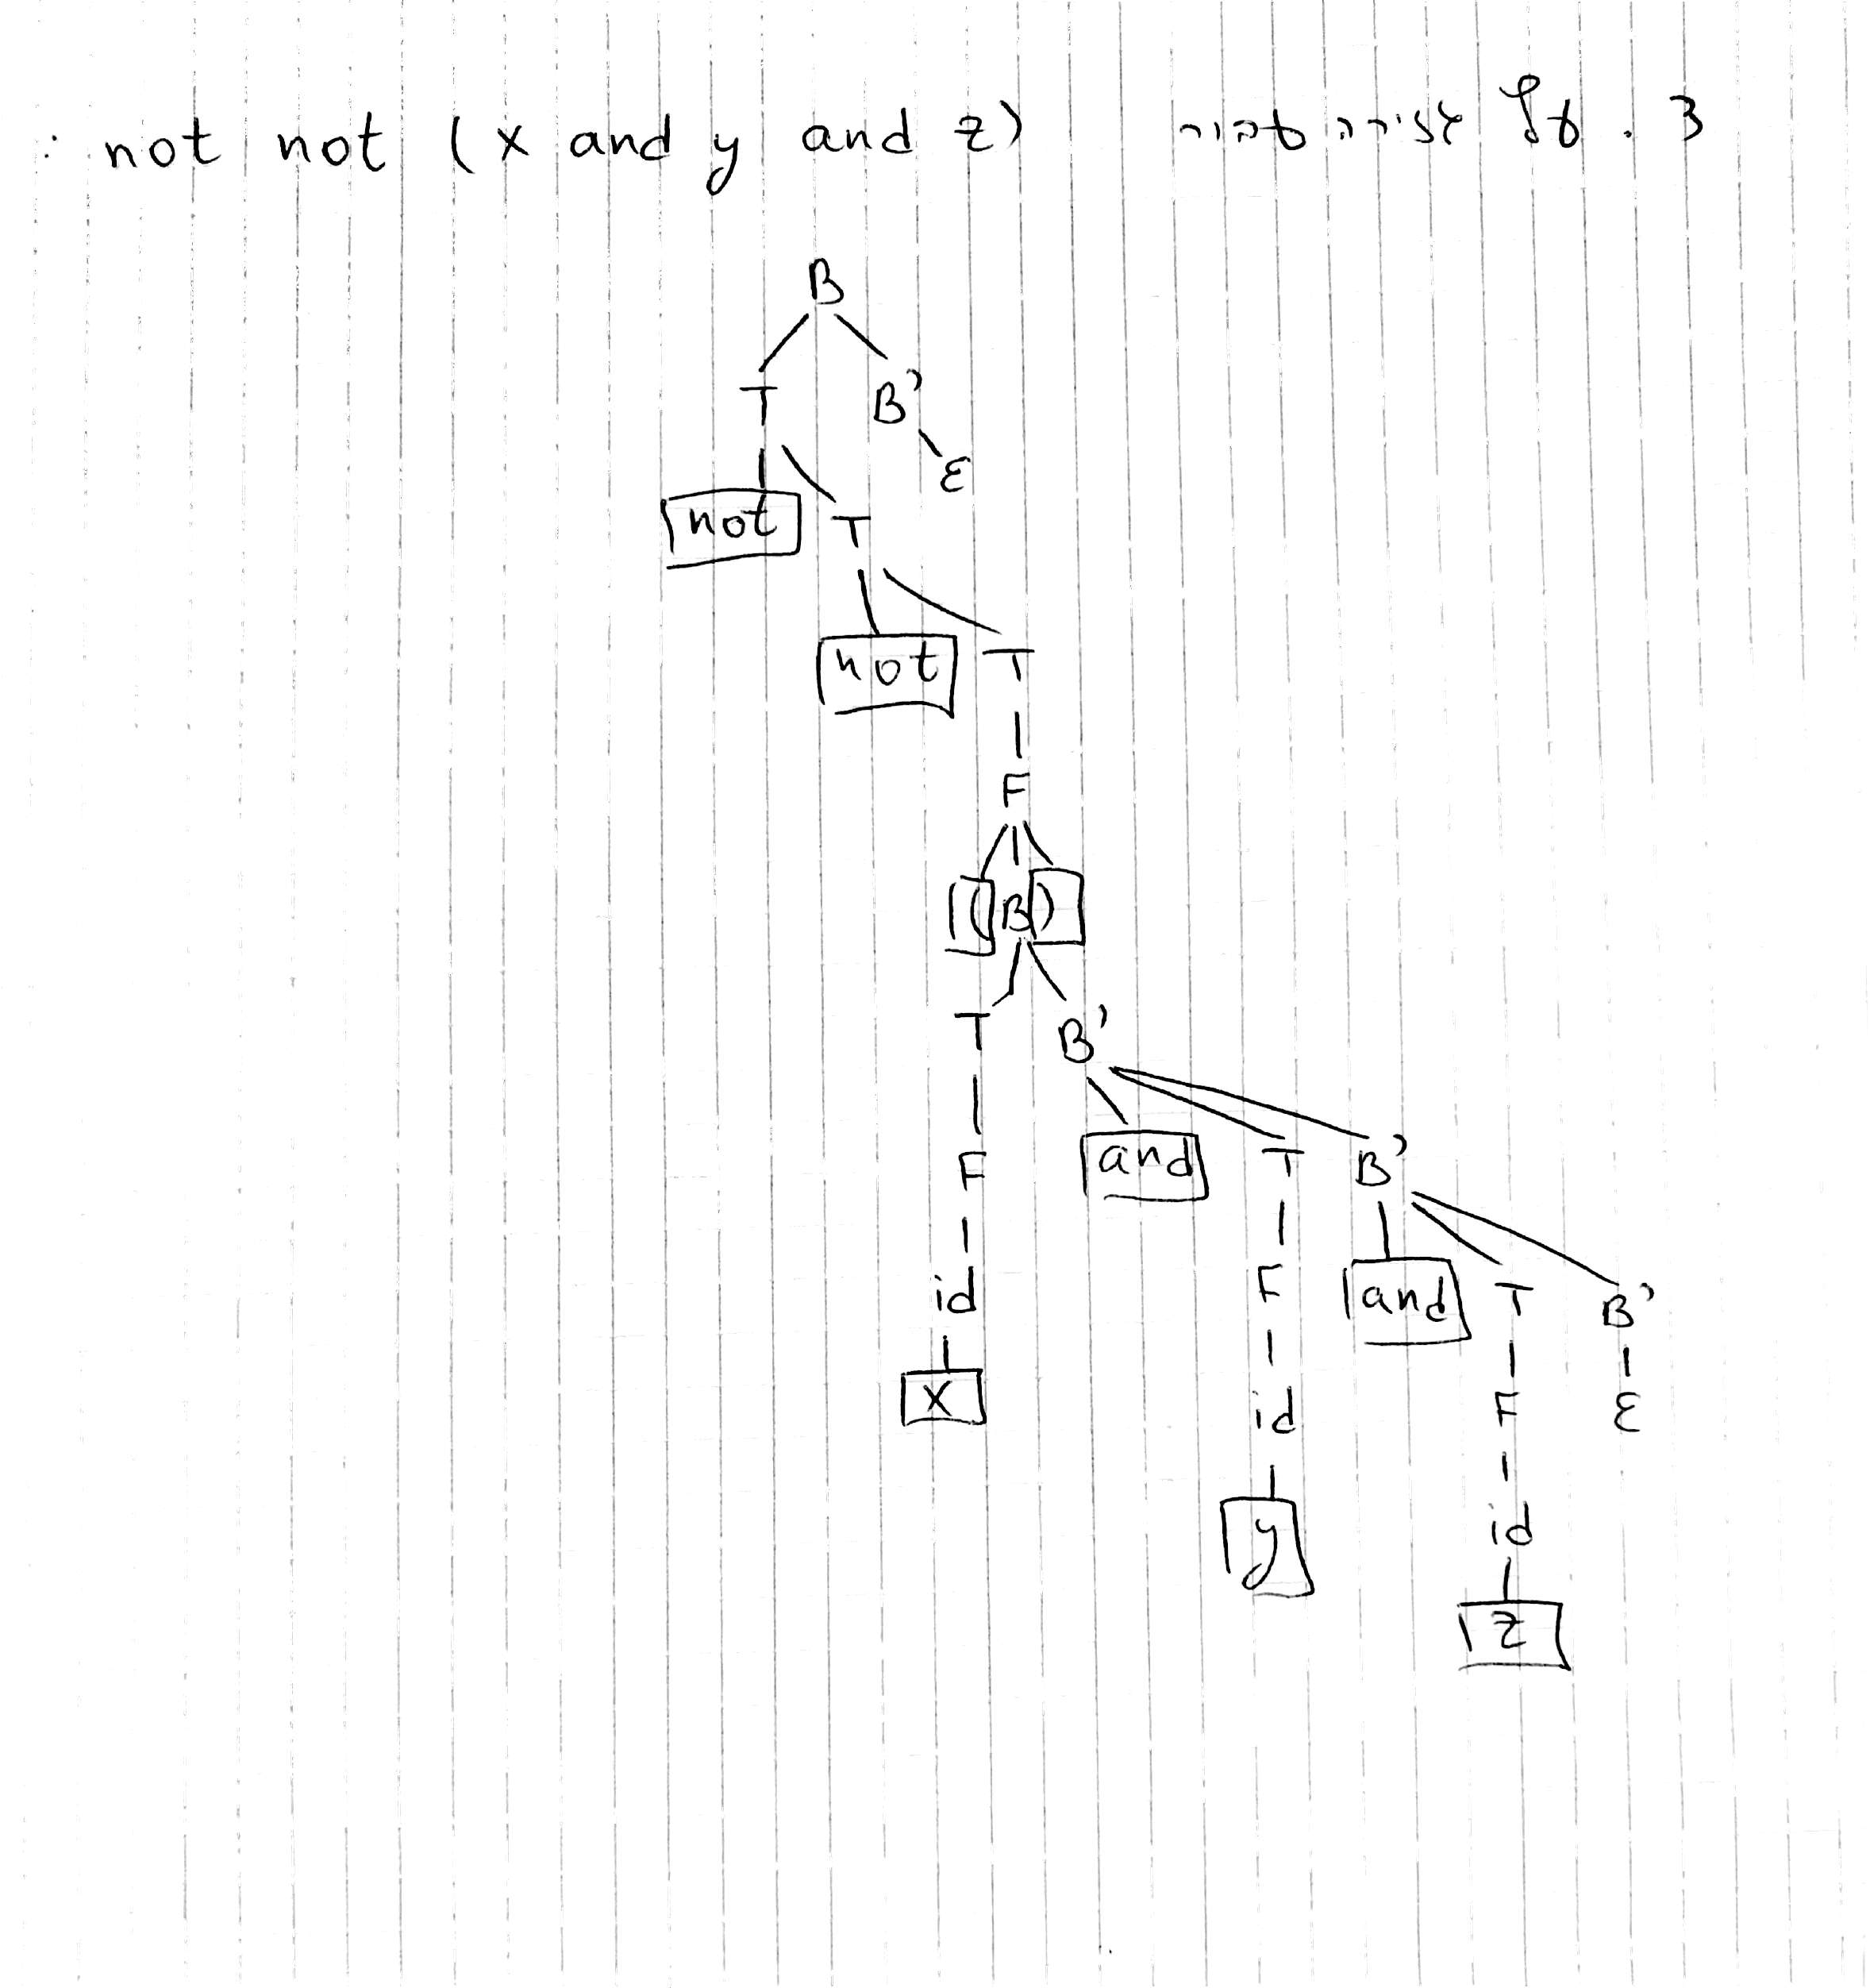 3. עץ גזירה עבור not not (x and y and z) :
B
T B'
ε
not T
not T
F
( B )
T B'
F and T B'
id F and T B'
x id F ε
y id
z